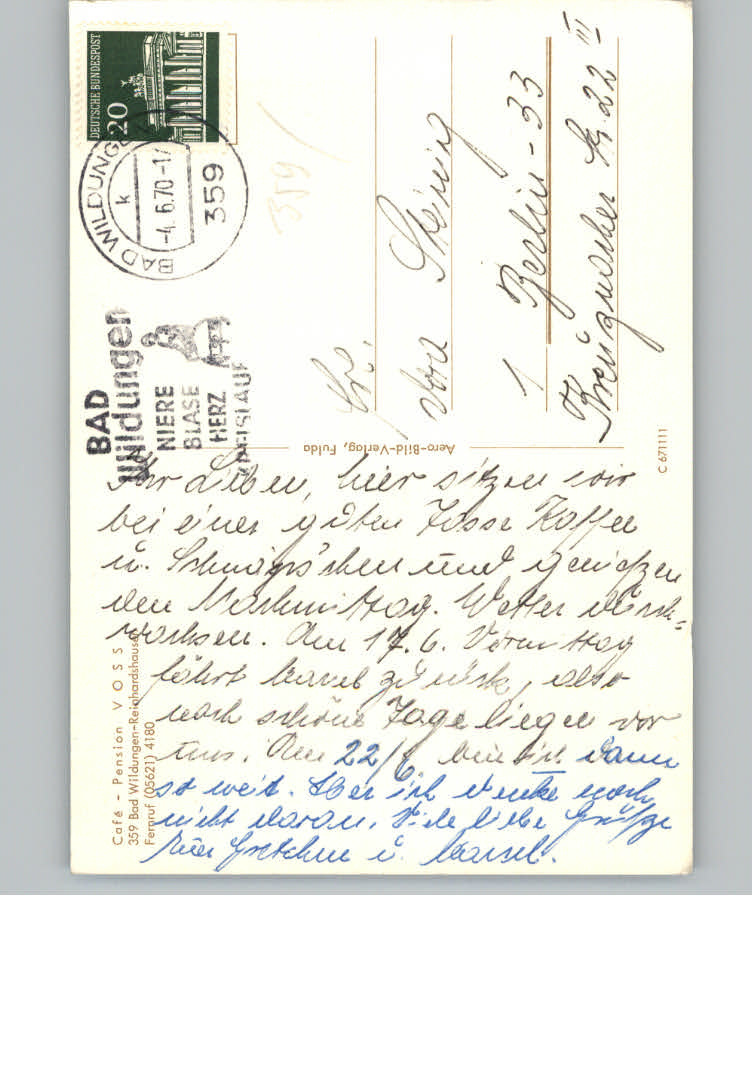 DEUTSCHE BUNDESPOST
20
BAD WILDUNGEN
k
-4. 6.70-1
359
BAD
Wildungen
NIERE
BLASE
HERZ
KREISLAUF
359
Fr.
Dora Steinig
1 Berlin-33
Kreuznacher Str. 22 III
Aero-Bild-Verlag, Fulda
C 671111
Café - Pension VOSS
359 Bad Wildungen-Reinhardshausen
Fernruf (05621) 4180
Ihr Lieben, hier sitzen wir
bei einer guten Tasse Kaffee
u. Schnäps'chen und genießen
den Nachmittag. Wetter durch-
wachsen. Am 17. 6. Vormittag
fährt zurück, also
noch schöne Tage liegen vor
uns. Am 22/6 bin ich dann
so weit. Aber ich denke noch
nicht daran. Viele liebe Grüße
Gretchen u.